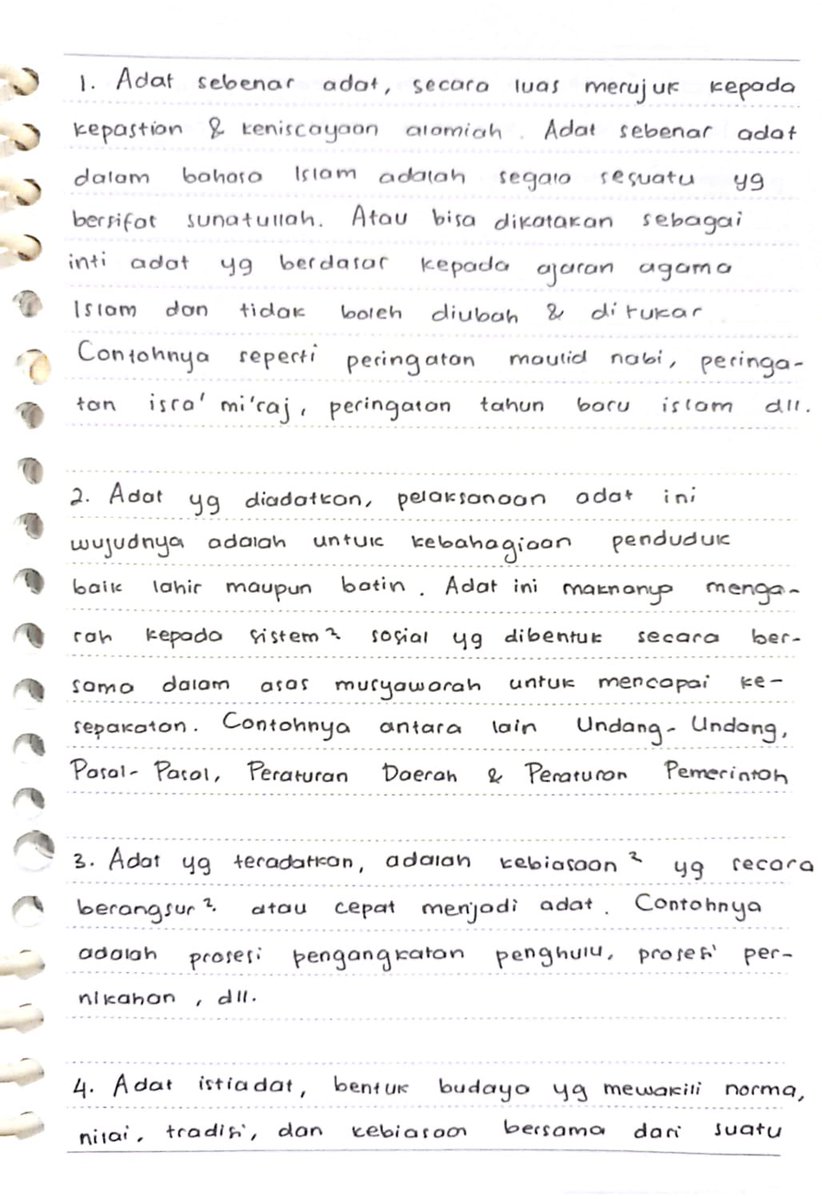 1. Adat sebenar adat, secara luas merujuk kepada
kepastian & keniscayaan alamiah. Adat sebenar adat
dalam bahasa Islam adalah segala sesuatu yg
bersifat sunatullah. Atau bisa dikatakan sebagai
inti adat yg berdasar kepada ajaran agama
Islam dan tidak boleh diubah & ditukar
Contohnya seperti peringatan maulid nabi, peringa-
tan isra' mi'raj, peringatan tahun baru islam dll.
2. Adat yg diadatkan, pelaksanaan adat ini
wujudnya adalah untuk kebahagiaan penduduk
baik lahir maupun batin. Adat ini maknanya menga-
rah kepada sistem² sosial yg dibentuk secara ber-
sama dalam asas musyawarah untuk mencapai ke-
sepakatan. Contohnya antara lain Undang-Undang,
Pasal-Pasal, Peraturan Daerah & Peraturan Pemerintah
3. Adat yg teradatkan, adalah kebiasaan² yg secara
berangsur² atau cepat menjadi adat. Contohnya
adalah prosesi pengangkatan penghulu, prosesi per-
nikahan, dll.
4. Adat istiadat, bentuk budaya yg mewakili norma,
nilai, tradisi, dan kebiasaan bersama dari suatu